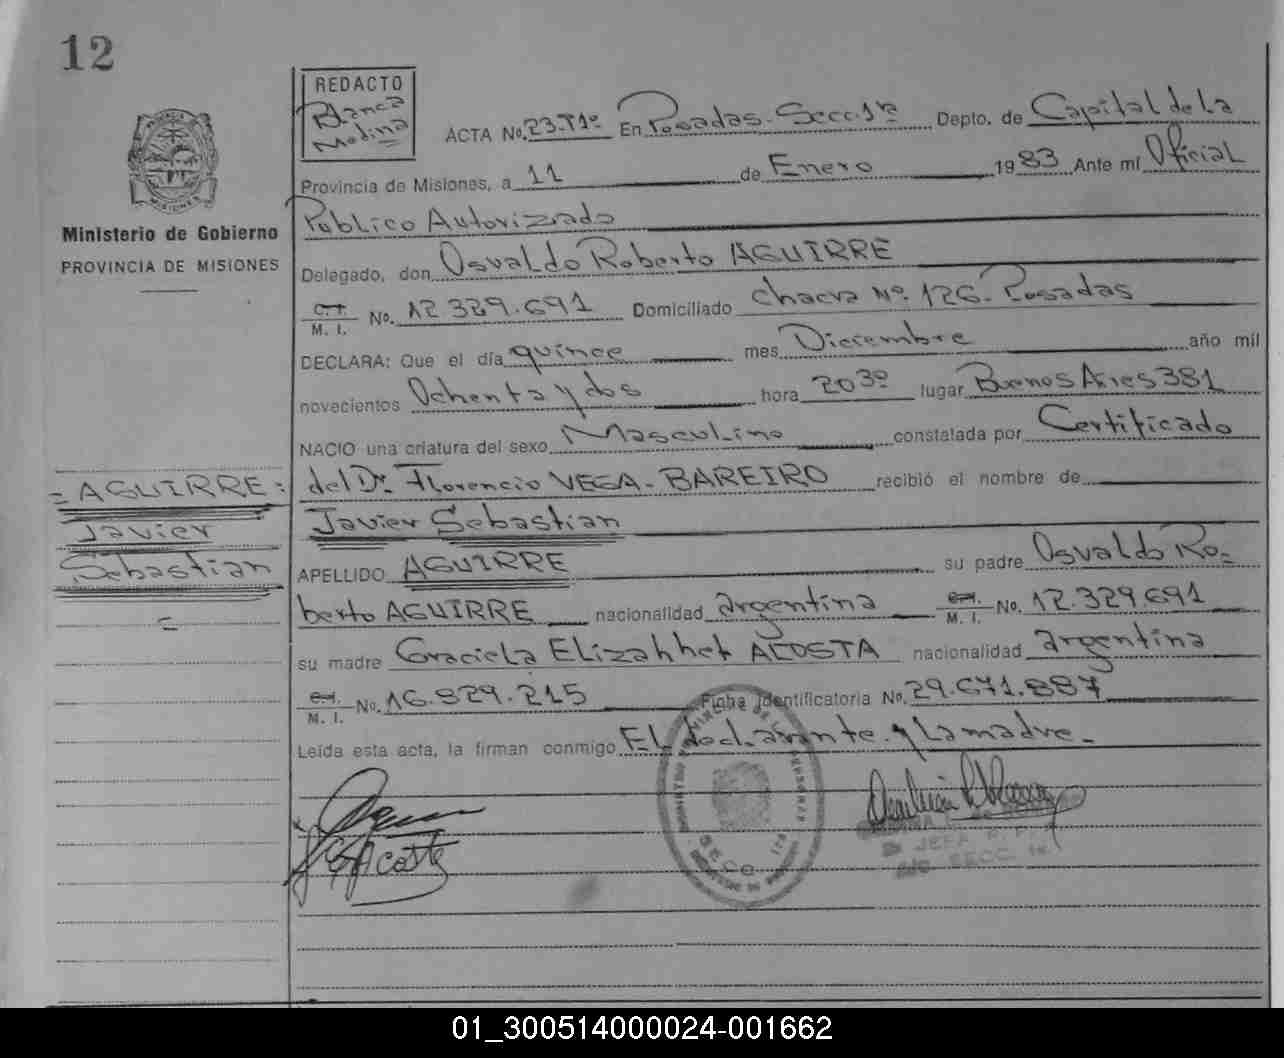 12
REDACTO
Blanca
Medina
ACTA No. 23-T1º En Posadas-Secc. 1ra Depto. de Capital de la
Provincia de Misiones, a 11 de Enero 1983 Ante mí Oficial
Público Autorizado
Ministerio de Gobierno
PROVINCIA DE MISIONES
Delegado, don Osvaldo Roberto AGUIRRE
C.I. M. I. No. 12.329.691 Domiciliado Chacra Nº 126-Posadas
DECLARA: Que el día quince mes Diciembre año mil
novecientos Ochenta y dos hora 20 30 lugar Buenos Aires 381
NACIO una criatura del sexo Masculino constatada por Certificado
=AGUIRRE:
Javier
Sebastian
=
del Dr. Florencio VEGA-BAREIRO recibió el nombre de
Javier Sebastian
APELLIDO AGUIRRE su padre Osvaldo Ro=
berto AGUIRRE nacionalidad argentina M. I. No. 12.329.691
su madre Graciela Elizabhet ACOSTA nacionalidad argentina
M. I. No. 16.829.215 Ficha Identificatoria No. 29.671.887
Leída esta acta, la firman conmigo El declarante y la madre-
G Acosta
SECC. 1ra
JEFA R. P.
SECC. 1a
01_300514000024-001662